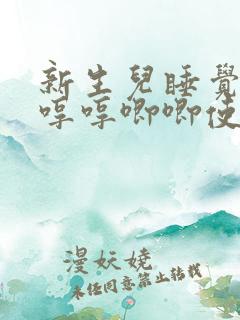 新生兒睡覺
哼哼唧唧使
漫妖嬈
未经同意禁止转载